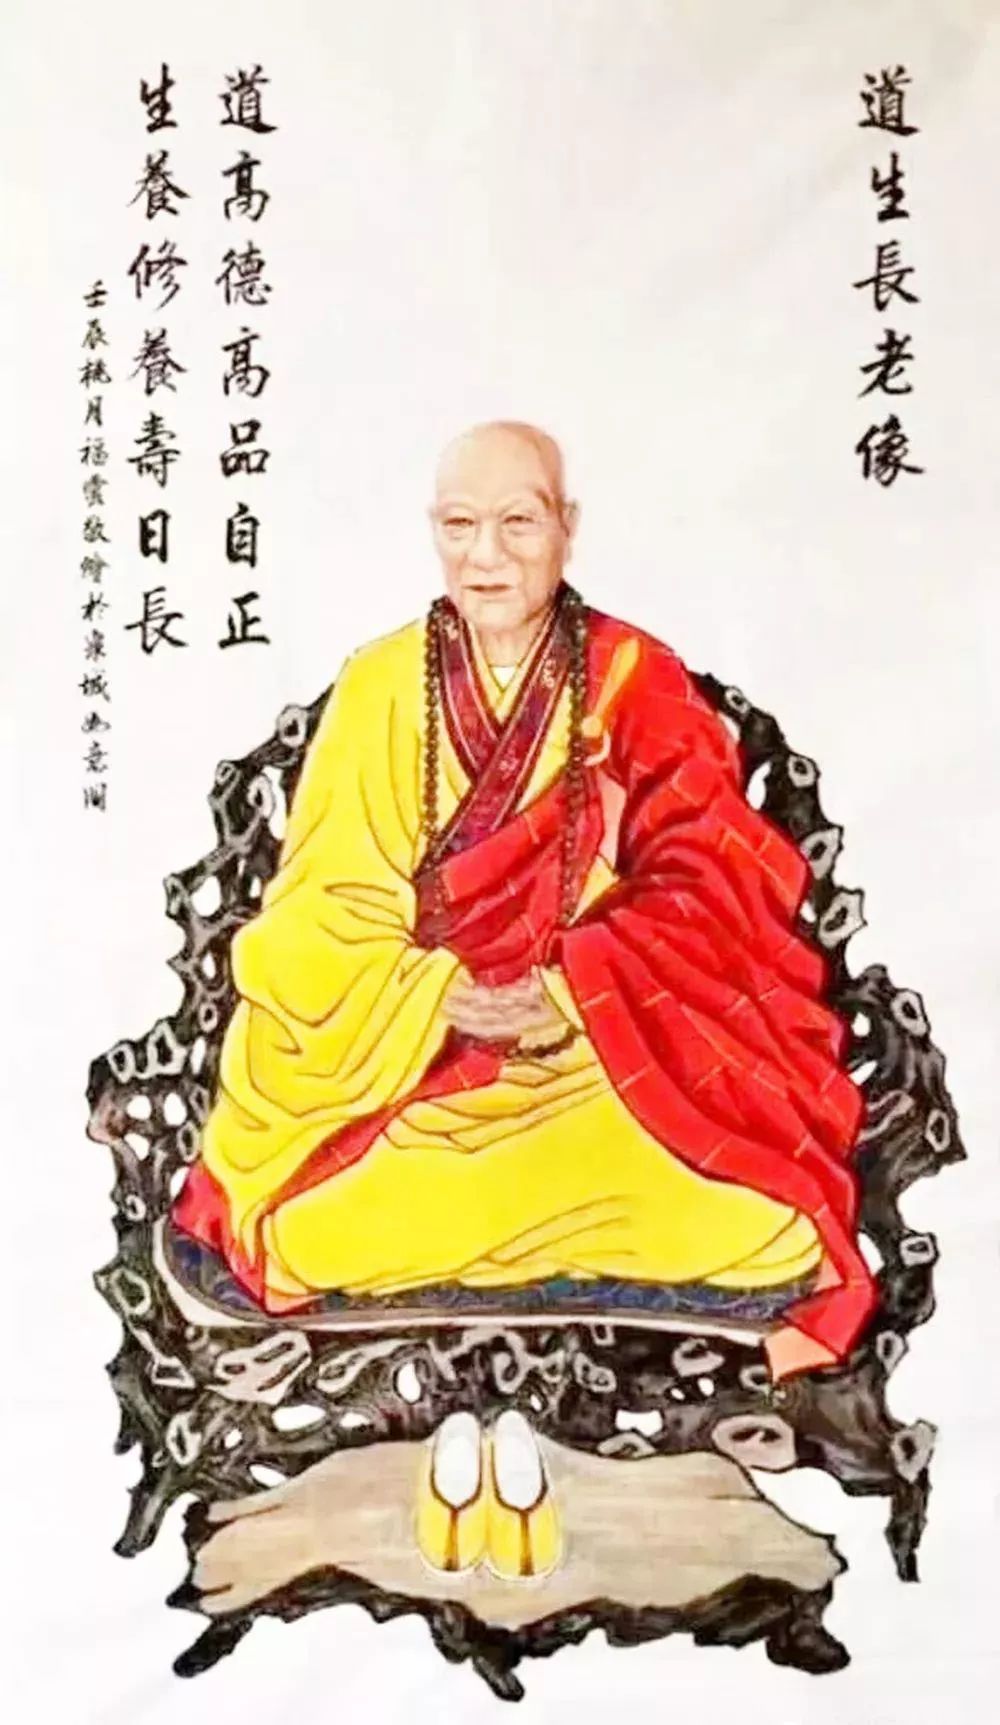 道生長老像
道高德高品自正
生養修養壽日長
壬辰桃月福雲敬繪於
城如意閣